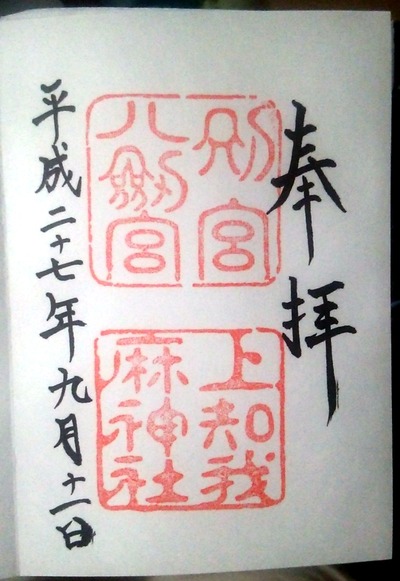 奉拝
別宮
八剱宮
上知我
麻神社
平成二十七年九月十一日